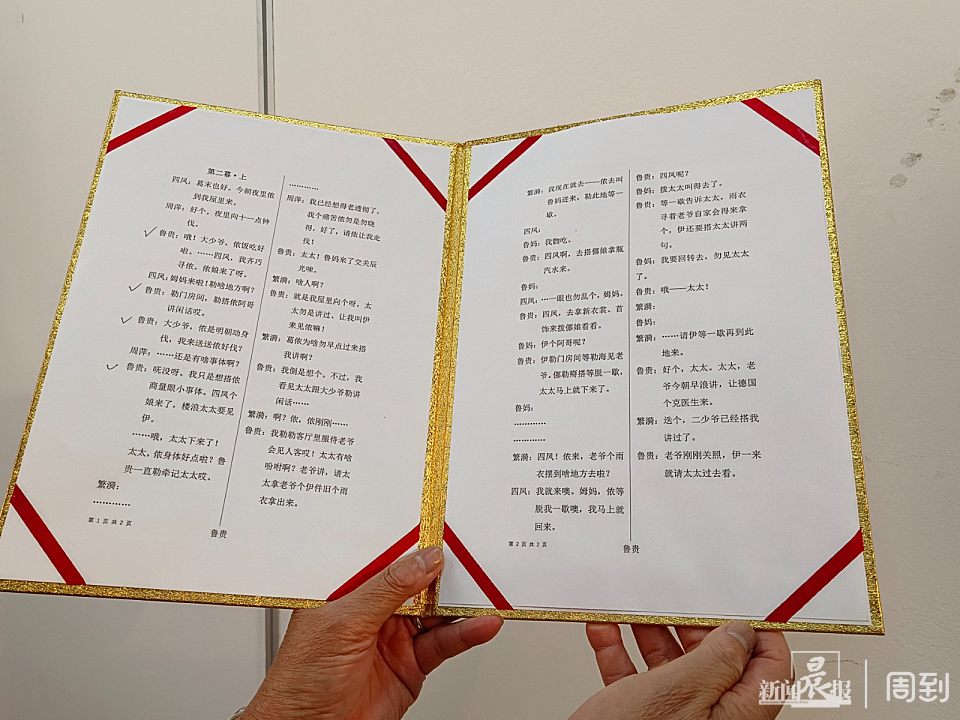 第二幕·上
四凤：葛末也好。今朝夜里侬
到我屋里来。
周萍：好个。夜里向十一点钟
伐。
鲁贵：哦！大少爷，侬饭吃好
啦。……四凤，我齐巧
寻侬。侬娘来了呀。
四凤：姆妈来啦！勒啥地方啊？
鲁贵：勒门房间，勒搭侬阿哥
讲闲话哎。
鲁贵：大少爷，侬是明朝动身
伐，我来送送侬好伐？
周萍：……还是有啥事体啊？
鲁贵：呒没呀。我只是想搭侬
商量眼小事体。四凤个
娘来了，楼浪太太要见
伊。
……哦，太太下来了！
太太，侬身体好点啦？鲁
贵一直勒牵记太太哎。
繁漪：
…………
第 1 页 共 2 页
…………
周萍：我已经想得老透彻了，
我个痛苦侬勿是勿晓
得，好了，请侬让我走
伐！
鲁贵：太太！鲁妈来了交关辰
光唻。
繁漪：啥人啊？
鲁贵：就是我屋里向个呀，太
太勿是讲过、让我叫伊
来见侬嘛！
繁漪：葛侬为啥勿早点过来搭
我讲啊？
鲁贵：我倒是想个。不过，我
看见太太跟大少爷勒讲
闲话……
繁漪：啊？侬，侬刚刚……
鲁贵：我勒勒客厅里服侍老爷
会见人客哎！太太有啥
吩咐啊？老爷讲，请太
太拿老爷个伊件旧个雨
衣拿出来。
鲁贵
繁漪：我现在就去——侬去叫
鲁妈进来，勒此地等一
歇。
四凤：
鲁妈：我覅吃。
鲁贵：四凤啊，去搭倻娘拿瓶
汽水来。
鲁妈：
四凤：…一眼也勿乱个，姆妈。
鲁贵：四凤，去拿新衣裳、首
饰来拨倻娘看看。
鲁妈：伊个阿哥呢？
鲁贵：伊勒门房间等勒海见老
爷。倻勒搿搭等脱一歇，
太太马上就下来了。
鲁妈：
…………
…………
繁漪：四凤！侬来，老爷个雨
衣摆到啥地方去啦？
四凤：我就来噢。姆妈，侬等
脱我一歇噢，我马上就
回来。
第 2 页 共 2 页
鲁贵：四凤呢？
鲁妈：拨太太叫得去了。
鲁贵：等一歇告诉太太，雨衣
寻着老爷自家会得来拿
个，伊还要搭太太讲两
句。
鲁妈：我要回转去，勿见太太
了。
鲁贵：哦——太太！
繁漪：
鲁妈：
繁漪：……请伊等一歇再到此
地来。
鲁贵：好个，太太。太太，老
爷今朝早浪讲，让德国
个克医生来。
繁漪：迭个，二少爷已经搭我
讲过了。
鲁贵：老爷刚刚关照，伊一来
就请太太过去看。
鲁贵
新闻晨报 周到